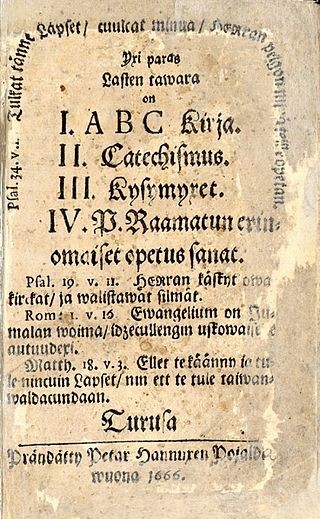 Psal. 34. v. Tulkat tänne Lapset/ cuulcat minua/ HERran pelgon opetan.
Yxi paras
Lasten tawara
on
I. ABC Kirja.
II. Catechismus.
III. Kysymyxet.
IV. P. Raamatun erin-
omaiset opetus sanat.
Psal. 19. v. 11. HERran käskyt owa
kirckat/ ja walistawat silmät.
Rom: 1. v. 16 Ewangelium on Ju-
malan woima/ idzecullengin uskowaise
autuudexi.
Matth. 18. v. 3. Ellet te käänny ja tu-
le nincuin Lapset/ nin ett te tule taiwan
waldacundaan.
Turusa
Prändätty Petar Hannuxen Pojalda
wuona 1666.